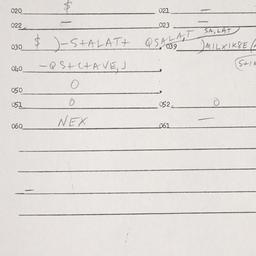 020 $ 021 —
022 — 023 —
SALAT
030 $ )-S+ALAT+ QSALAT, 039
040 -QS+C+AVE,J
050 0
051 0 052 0
060 NEX 061 —